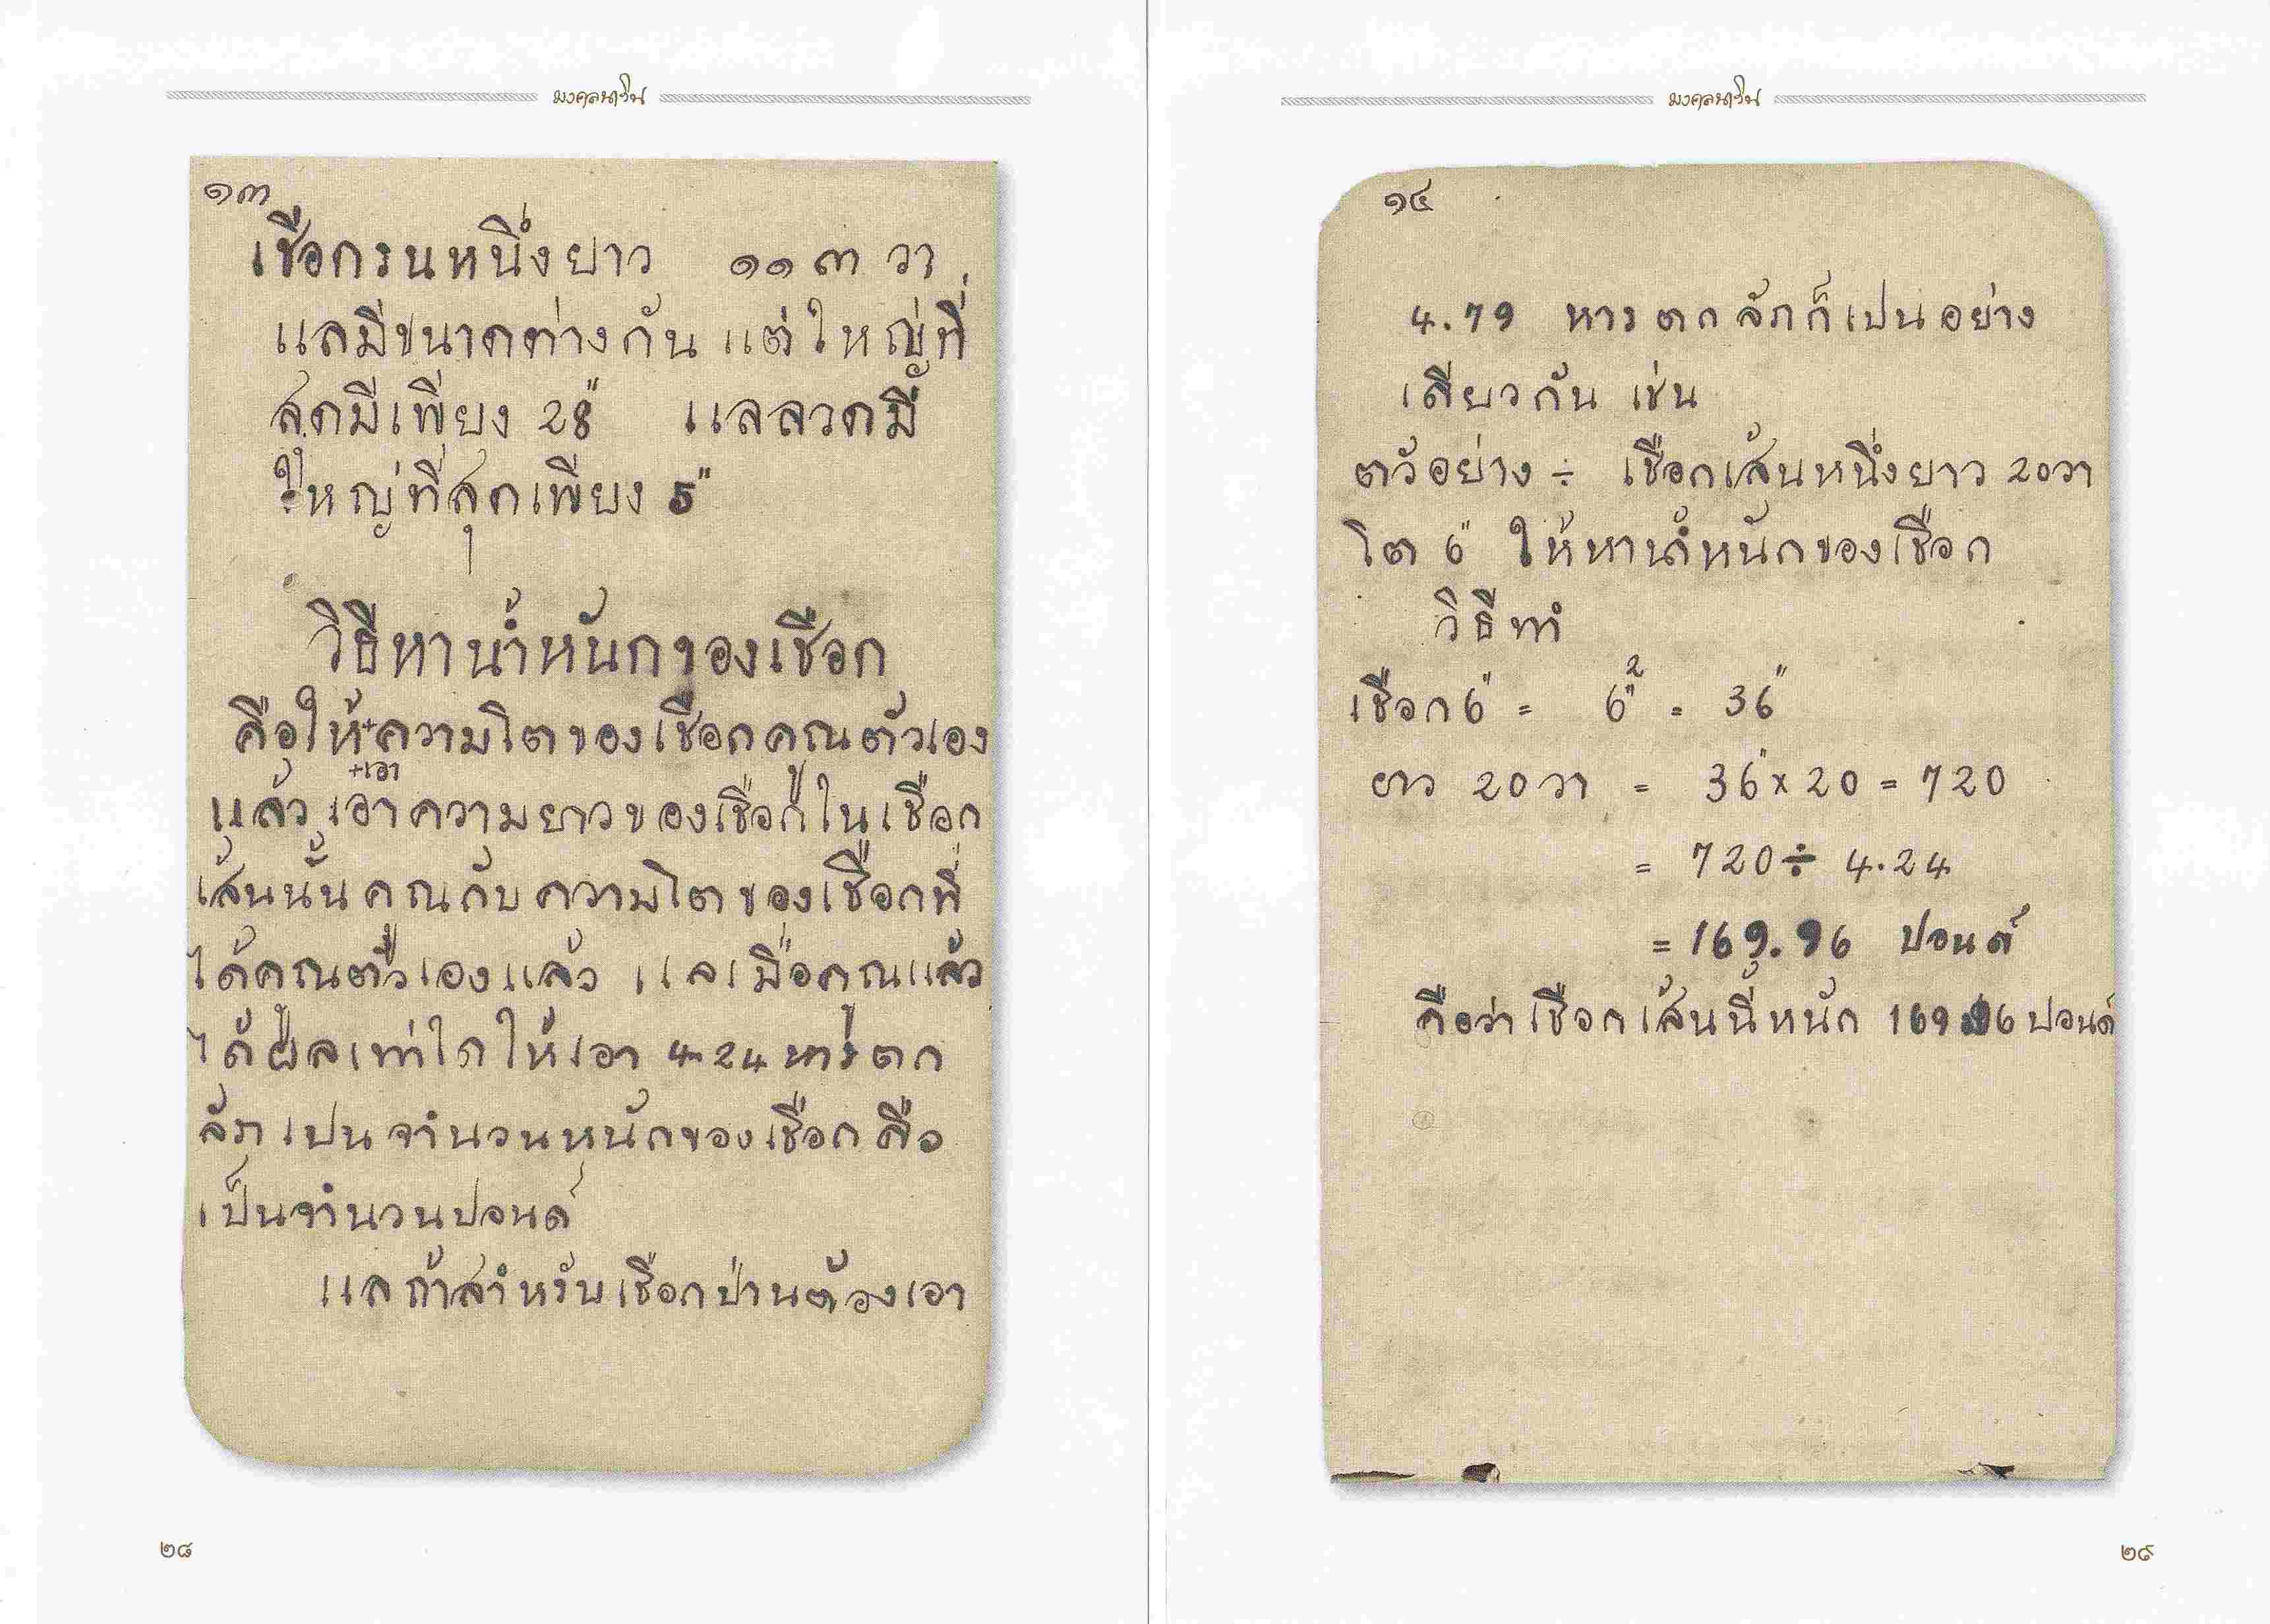 มงคลนาวิน
๑๓
เชือกรนหนึ่งยาว ๑๑๓ วา
แลมีขนาดต่างกัน แต่ใหญ่ที่
สุดมีเพียง 28" แลลวดมี
ใหญ่ที่สุดเพียง 5"
วิธีหาน้ำหนักของเชือก
คือให้+ความโตของเชือกคูณตัวเอง
+เอา
แล้วเอาความยาวของเชือกในเชือก
เส้นนั้นคูณกับความโตของเชือกที่
ได้คูณตัวเองแล้ว แลเมื่อคูณแล้ว
ได้ผลเท่าใดให้เอา 4.24 หารตก
ลัภเปนจำนวนหนักของเชือกคือ
เป็นจำนวนปอนด์
แลถ้าสำหรับเชือกป่านต้องเอา
๒๘
มงคลนาวิน
๑๔
4.79 หารตกลัภก็เปนอย่าง
เดียวกัน เช่น
ตัวอย่าง ÷ เชือกเส้นหนึ่งยาว 20วา
โต 6" ให้หาน้ำหนักของเชือก
วิธีทำ
เชือก 6" = 6"² = 36"
ยาว 20วา = 36"×20 = 720
= 720 ÷ 4.24
= 169.96 ปอนด์
คือว่าเชือกเส้นนี้หนัก 169.96 ปอนด์
๒๙